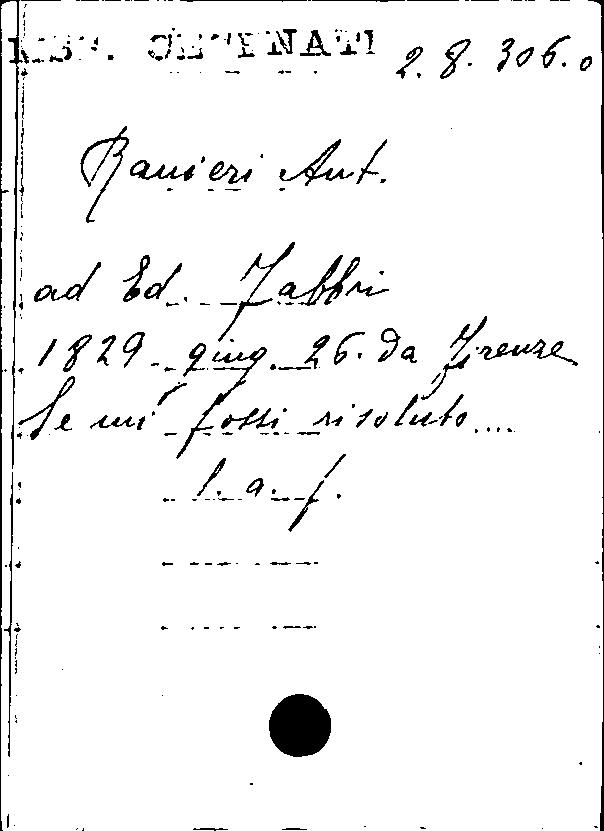 MSS. CESENATI 2.8.306.0
Ranieri Ant.
ad Ed. Fabbri
1829. giug. 26. da Firenze
Se mi fossi risoluto....
l. a. f.